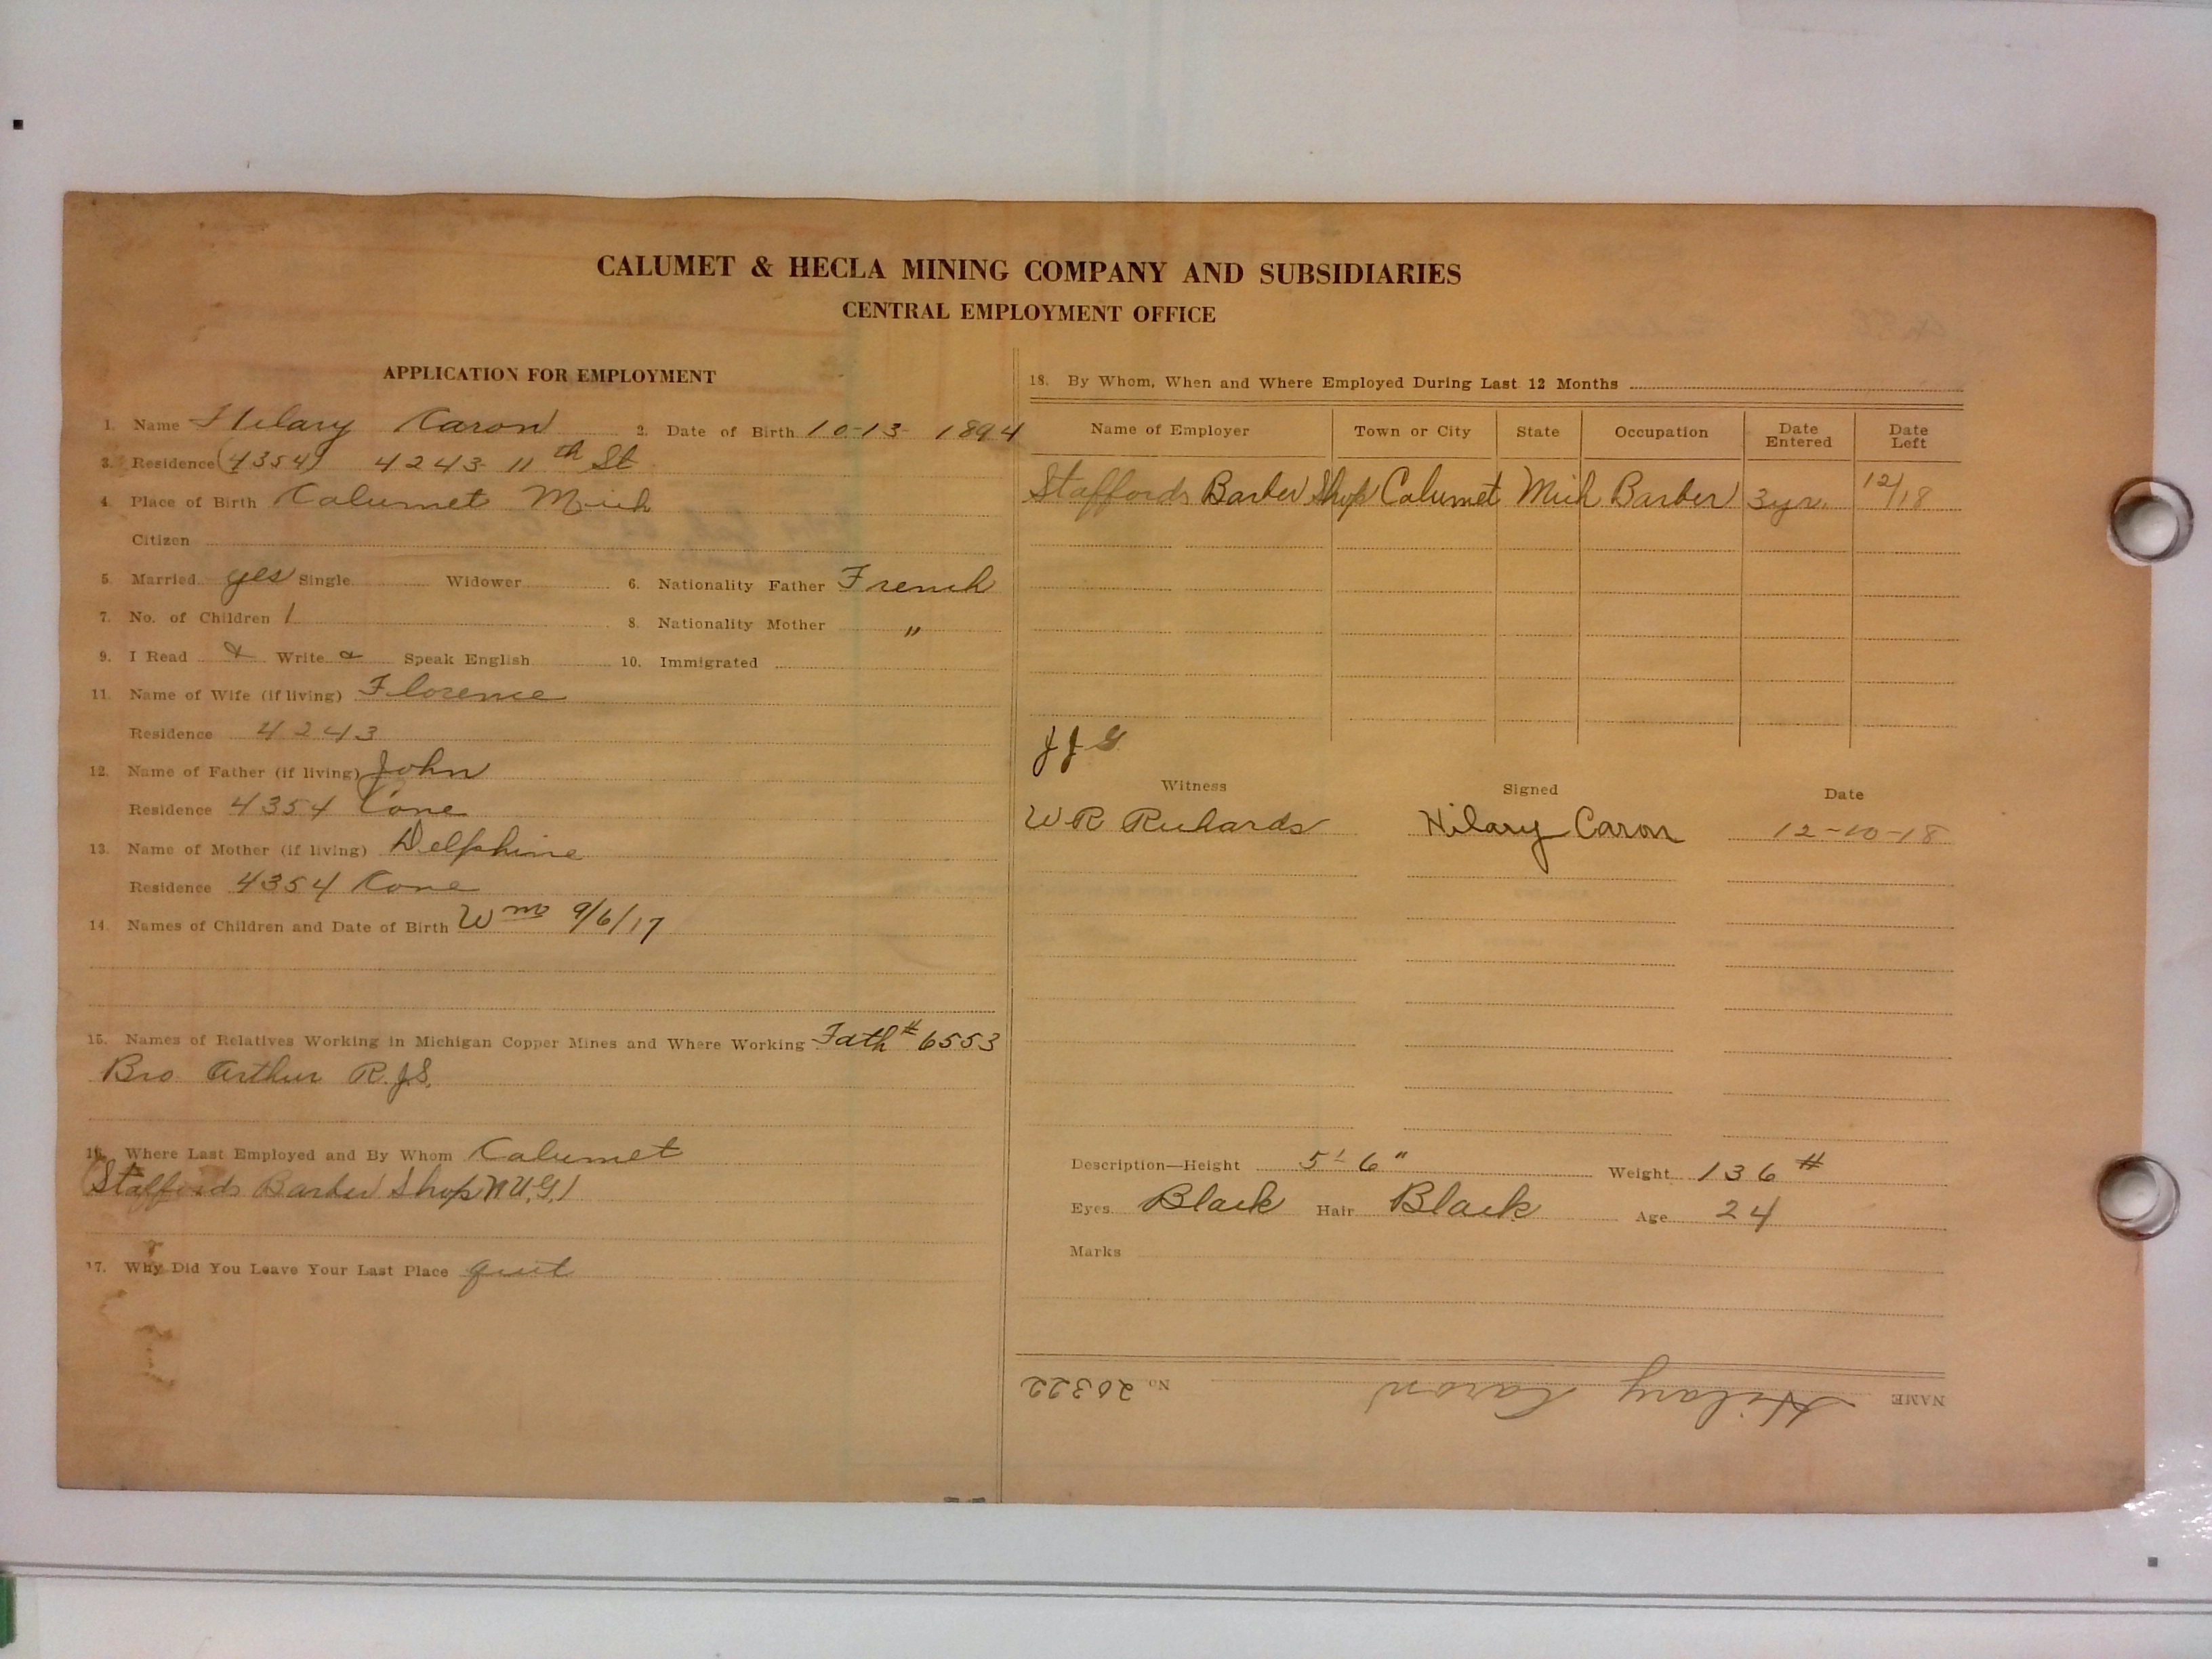 CALUMET & HECLA MINING COMPANY AND SUBSIDIARIES
CENTRAL EMPLOYMENT OFFICE
APPLICATION FOR EMPLOYMENT
1. Name Hilary Caron 2. Date of Birth 10-13- 1894
3. Residence (4354) 4243 11th St
4. Place of Birth Calumet Mich
Citizen
5. Married yes Single Widower 6. Nationality Father French
7. No. of Children 1 8. Nationality Mother "
9. I Read & Write & Speak English 10. Immigrated
11. Name of Wife (if living) Florence
Residence 4243
12. Name of Father (if living) John
Residence 4354 Cone
13. Name of Mother (if living) Delphine
Residence 4354 Cone
14. Names of Children and Date of Birth Wm 9/6/17
15. Names of Relatives Working in Michigan Copper Mines and Where Working Fath # 6553
Bro Arthur R.J.S.
16. Where Last Employed and By Whom Calumet
(Staffords Barber Shop
17. Why Did You Leave Your Last Place quit
18. By Whom, When and Where Employed During Last 12 Months
Name of Employer Town or City State Occupation Date Entered Date Left
Staffords Barber Shop Calumet Mich Barber 3yr. 12/18
JJG
Witness Signed Date
W R Richards Hilary Caron 12-10-18
Description—Height 5' 6" Weight 136 #
Eyes Black Hair Black Age 24
Marks
NAME Hilary Caron No 20322